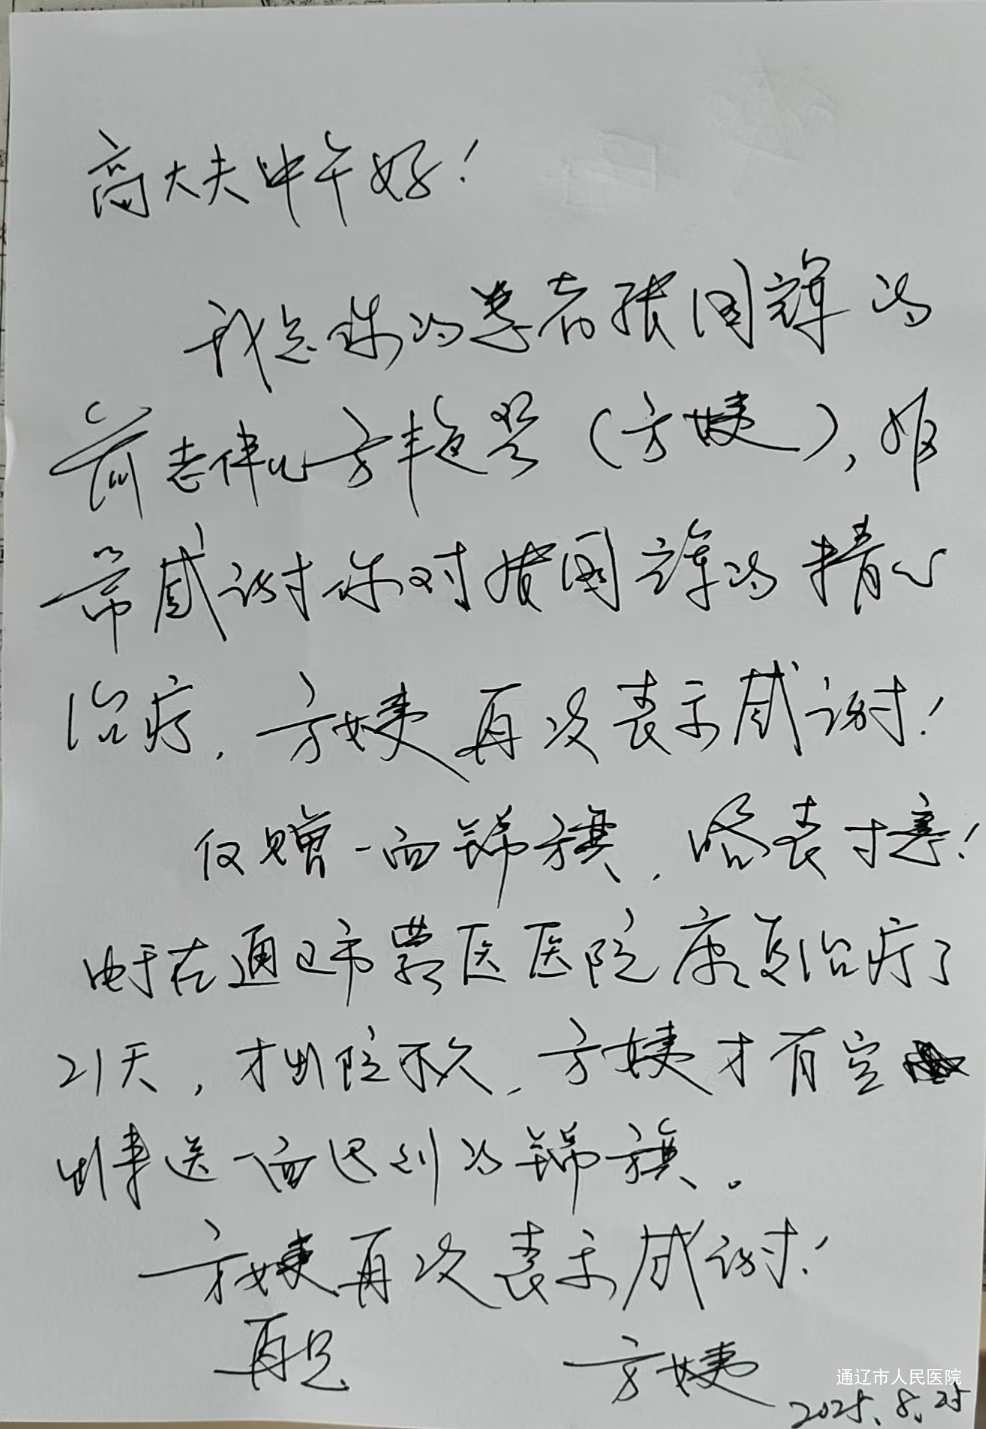 高大夫中午好！
我是你的患者张国辉的
前老伴儿方艳翠（方姨），非
常感谢你对张国辉的精心
治疗，方姨再次表示感谢！
仅赠一面锦旗，略表寸意！
由于在通辽市蒙医医院康复治疗了
21天，才出院不久，方姨才有空
出来送一面迟到的锦旗。
方姨再次表示感谢！
再见 方姨
2025.8.25
通辽市人民医院